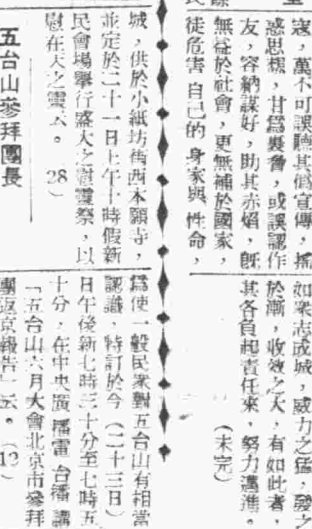 寇，萬不可誤聽其僞宣傳，搖
惑思想，甘爲會，或誤認作
友，容納謀好，助其赤焰，旣
無益於社會，更無補於國家，
徒危害自己的身家與性命，
如衆志成城，威力之猛，發之
於漸，收效之大，有如此者，
其各負起責任來，努力邁進。
（未完）
城，供於小紙坊街西本願寺，
並定於二十一日上午十時假新
民會場舉行盛大之慰靈祭，以
慰在天之靈云。（28）
五台山參拜團長
爲使一般民衆對五台山有相當
認識，特訂於今（二十三日）
日午後新七時三十分至七時五
十分，在中央廣播電台播講
「五台山六月大會北京市參拜
團返京報告」云。（12）